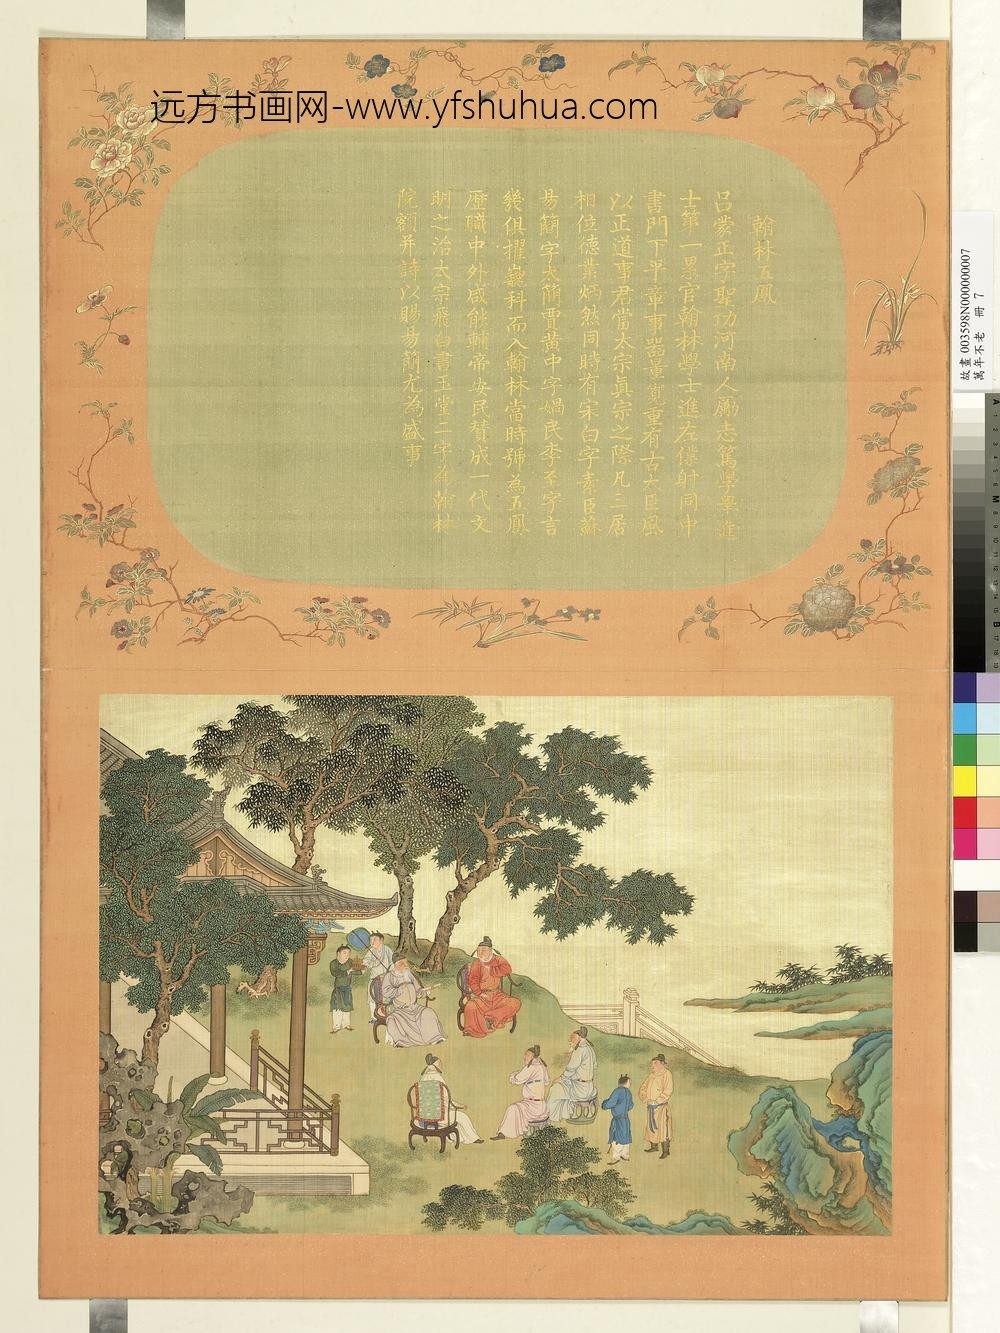 远方书画网-www.yfshuhua.com
翰林五鳳
呂蒙正字聖功河南人勵志篤學舉進
士第一累官翰林學士進左僕射同中
書門下平章事器量寬重有古大臣風
以正道事君當太宗真宗之際凡三居
相位德業炳然同時有宋白字素臣蘇
易簡字太簡賈黃中字媧民李至字言
幾俱擢巍科而入翰林當時號為五鳳
歷職中外咸能輔帝安民贊成一代文
明之治太宗飛白書玉堂二字為翰林
院額并詩以賜易簡尤為盛事
故畫 003598N000000007
萬年不老 冊 7